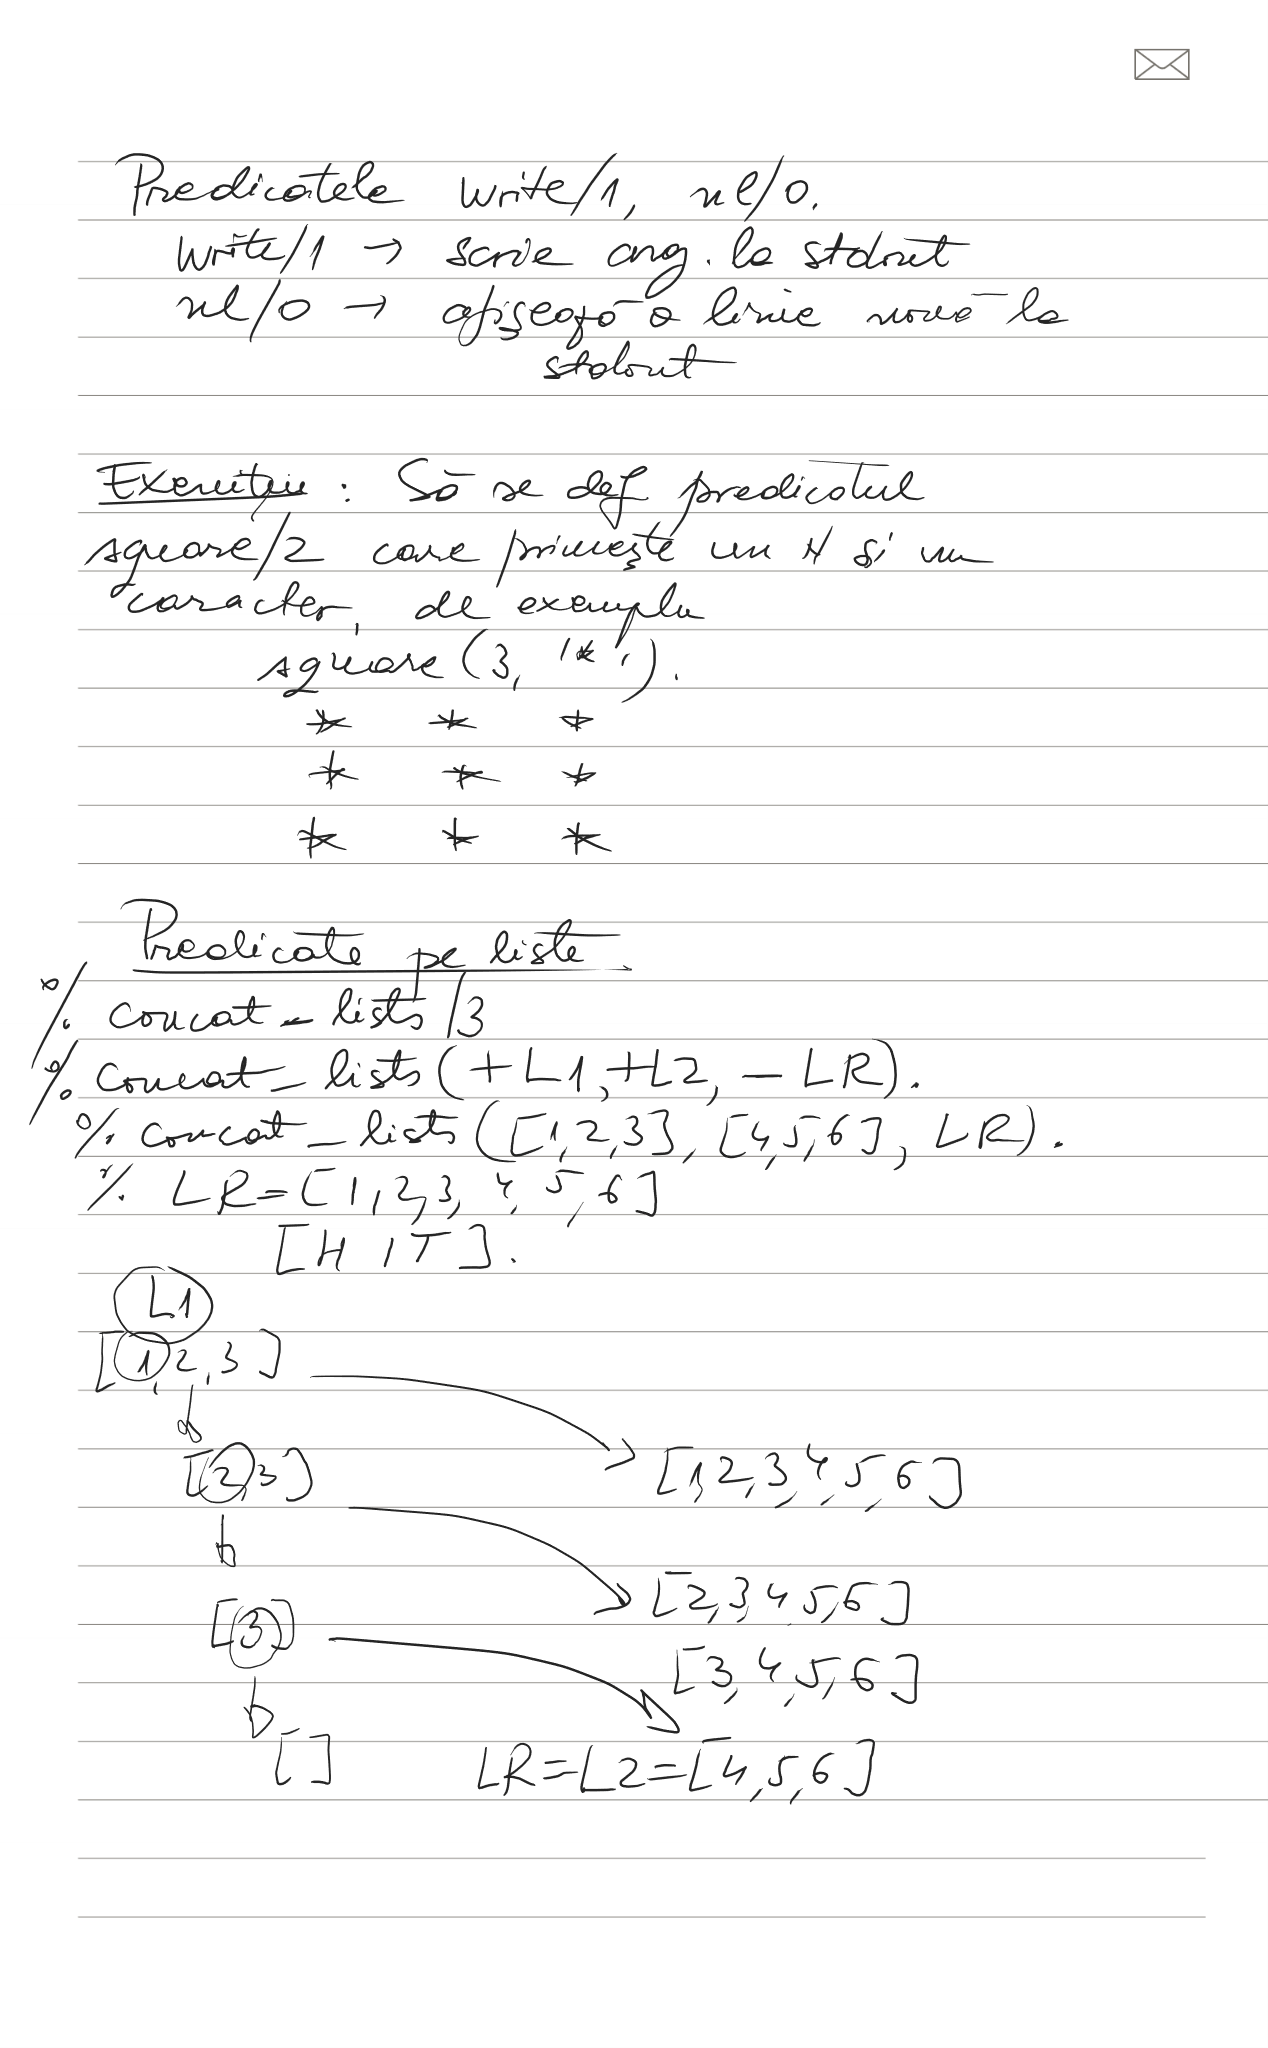 Predicatele write/1, nl/0.
write/1 → scrie arg. la stdout
nl/0 → afișează o linie nouă la
stdout
Exercițiu : Să se def predicatul
square/2 care primește un N și un
caracter, de exemplu
square (3, '*').
* * *
* * *
* * *
Predicate pe liste
% concat_lists/3
% concat_lists(+L1,+L2, -LR).
% concat_lists([1,2,3], [4,5,6], LR).
% LR=[1,2,3,4,5,6]
[H|T].
L1
[1,2,3]
[2,3] [1,2,3,4,5,6]
[2,3,4,5,6]
[3] [3,4,5,6]
[] LR=L2=[4,5,6]